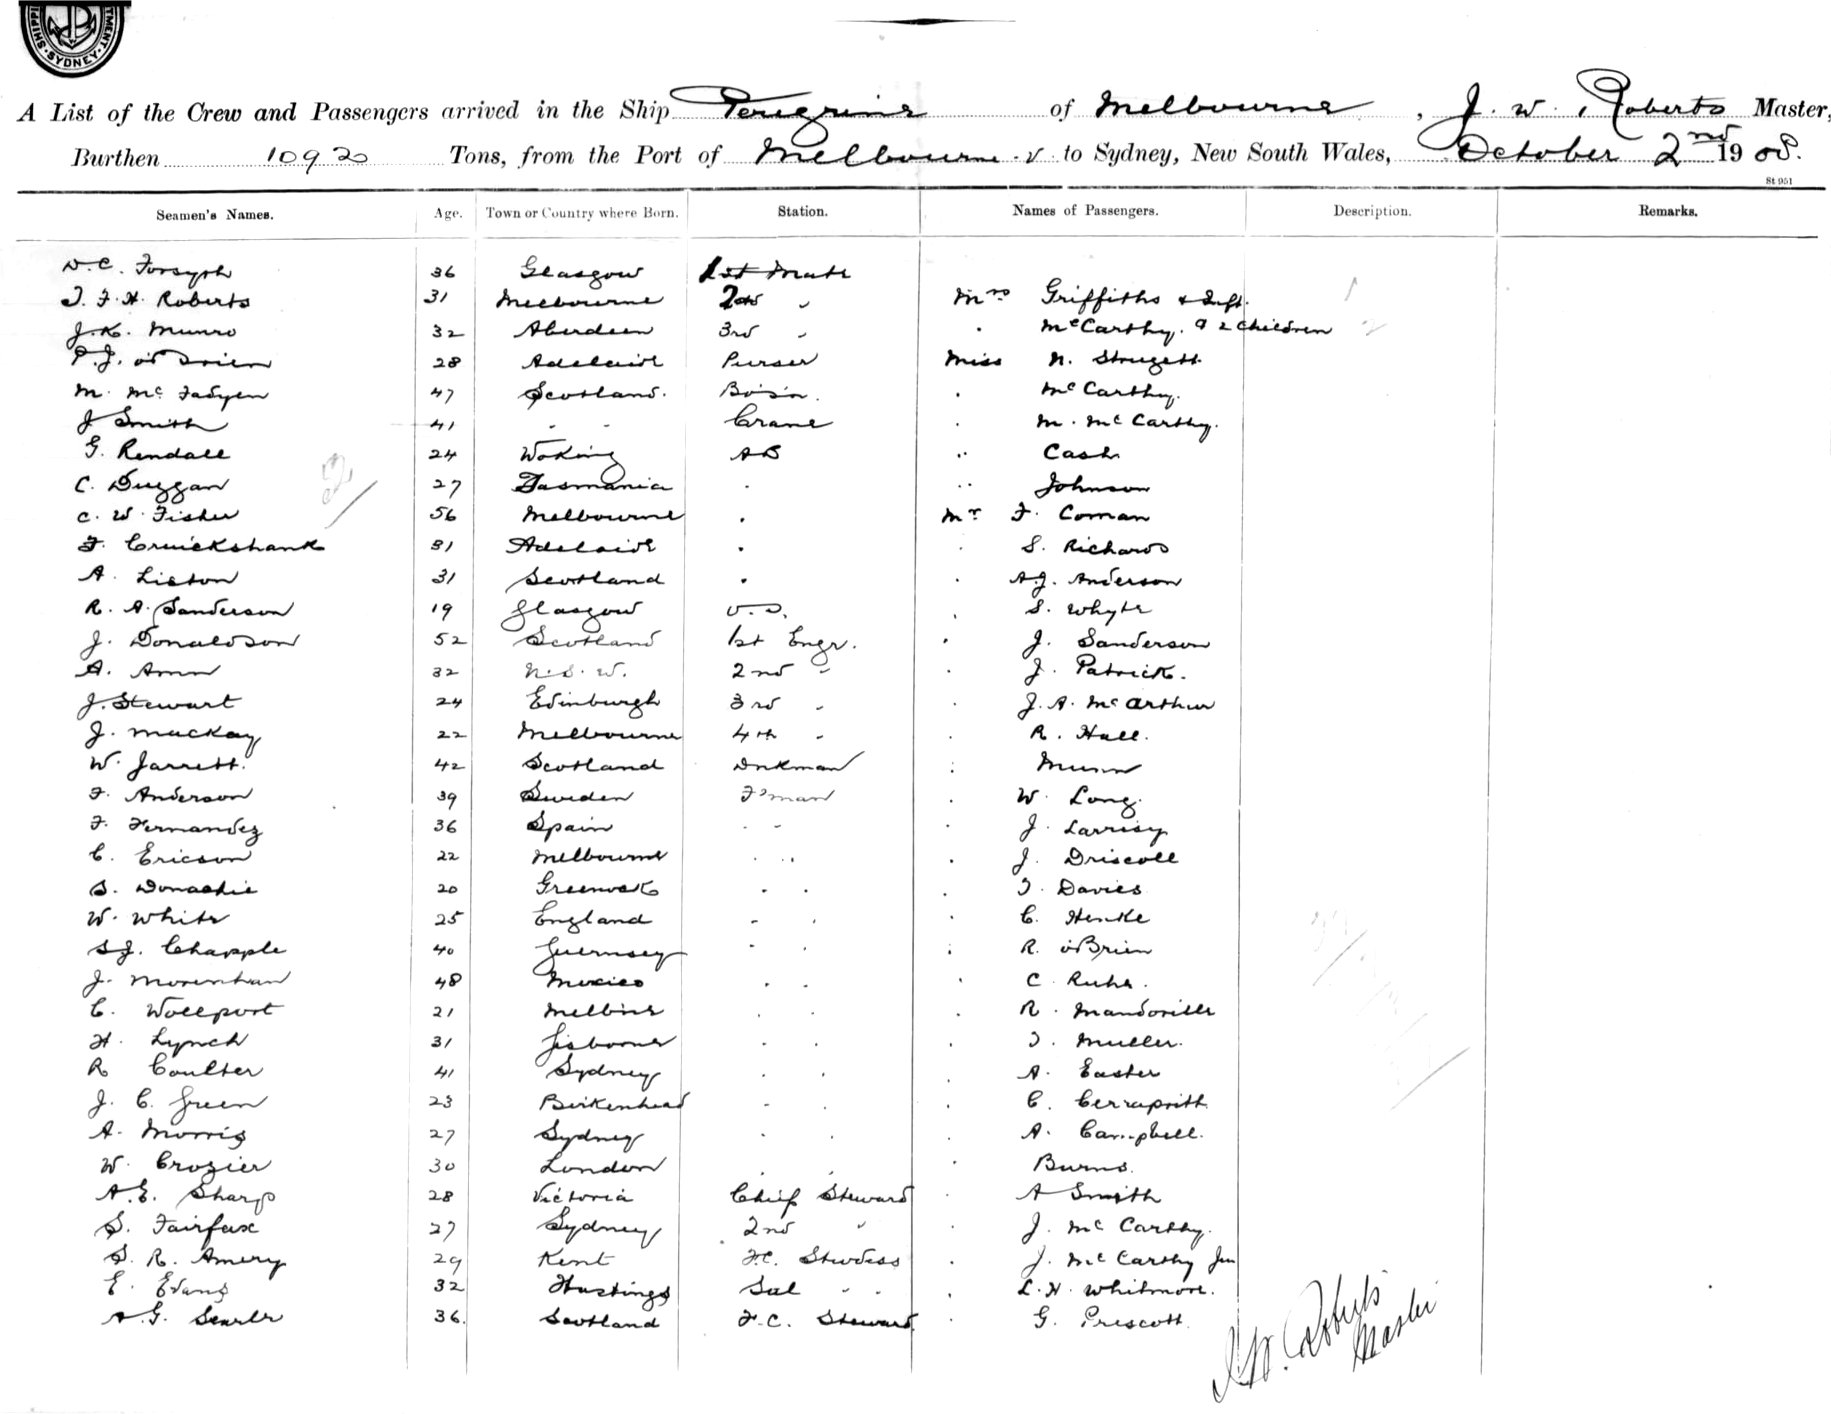 SHIPPI TMENT. SYDNEY
A List of the Crew and Passengers arrived in the Ship Peregrine of Melbourne, J. W. Roberts Master,
Burthen 1092 Tons, from the Port of Melbourne to Sydney, New South Wales, October 2nd 1908.
St 951
Seamen's Names. Age. Town or Country where Born. Station. Names of Passengers. Description. Remarks.
D. C. Forsyth 36 Glasgow 1st Mate
T. F. H. Roberts 31 Melbourne 2nd " Mrs Griffiths & Inft.
J. K. Munro 32 Aberdeen 3rd " " McCarthy. & 2 Children
P. J. O'Brien 28 Adelaide Purser Miss N. Strugett
M. McFadyen 47 Scotland. Bo's'n. " McCarthy.
J Smith 41 " " Crane " M. McCarthy.
G. Rendall 24 Woking AB " Cash
C. Duggan 27 Tasmania " " Johnson
C. W. Fisher 56 Melbourne " Mr F. Coman
F. Cruickshank 31 Adelaide " " S. Richards
A. Liston 31 Scotland " " A.J. Anderson
R. A. Sanderson 19 Glasgow O.S. " S. Whyte
J. Donaldson 52 Scotland 1st Engr. " J. Sanderson
A. Amn 32 N.S.W. 2nd " " J. Patrick.
J. Stewart 24 Edinburgh 3rd " " J. A. McArthur
J. Mackay 22 Melbourne 4th " " R. Hall.
W. Jarrett. 42 Scotland Dnkman " Munn
F. Anderson 39 Sweden F'man " W. Long.
F. Fernandez 36 Spain " " " J. Larrisy
C. Ericson 22 Melbourne " " " J. Driscoll
S. Donachie 20 Greenock " " " T. Davies
W. White 25 England " " " C. Henke
S.J. Chapple 40 Guernsey " " " R. O'Brien
J. 48 Mexico " " " C. Ruhe.
C. Wollport 21 Melbne " " " R. Mandoville
H. Lynch 31 Gisborne " " " T. Muller.
R Coulter 41 Sydney " " " A. Easter
J. C. Green 23 Birkenhead " " " C.
A. Morris 27 Sydney " " " A. Campbell.
W. Crozier 30 London " " " Burns.
A.E. Sharp 28 Victoria Chief Steward " A Smith
S. Fairfax 27 Sydney 2nd " " J. McCarthy.
S. R. Amery 29 Kent F.C. Stwdess " J. McCarthy Jun
E. Evans 32 Hastings Sal " " " L. H. Whitmore.
A. G. Searle 36. Scotland F.C. Steward " G. Prescott
J.W. Roberts
Master